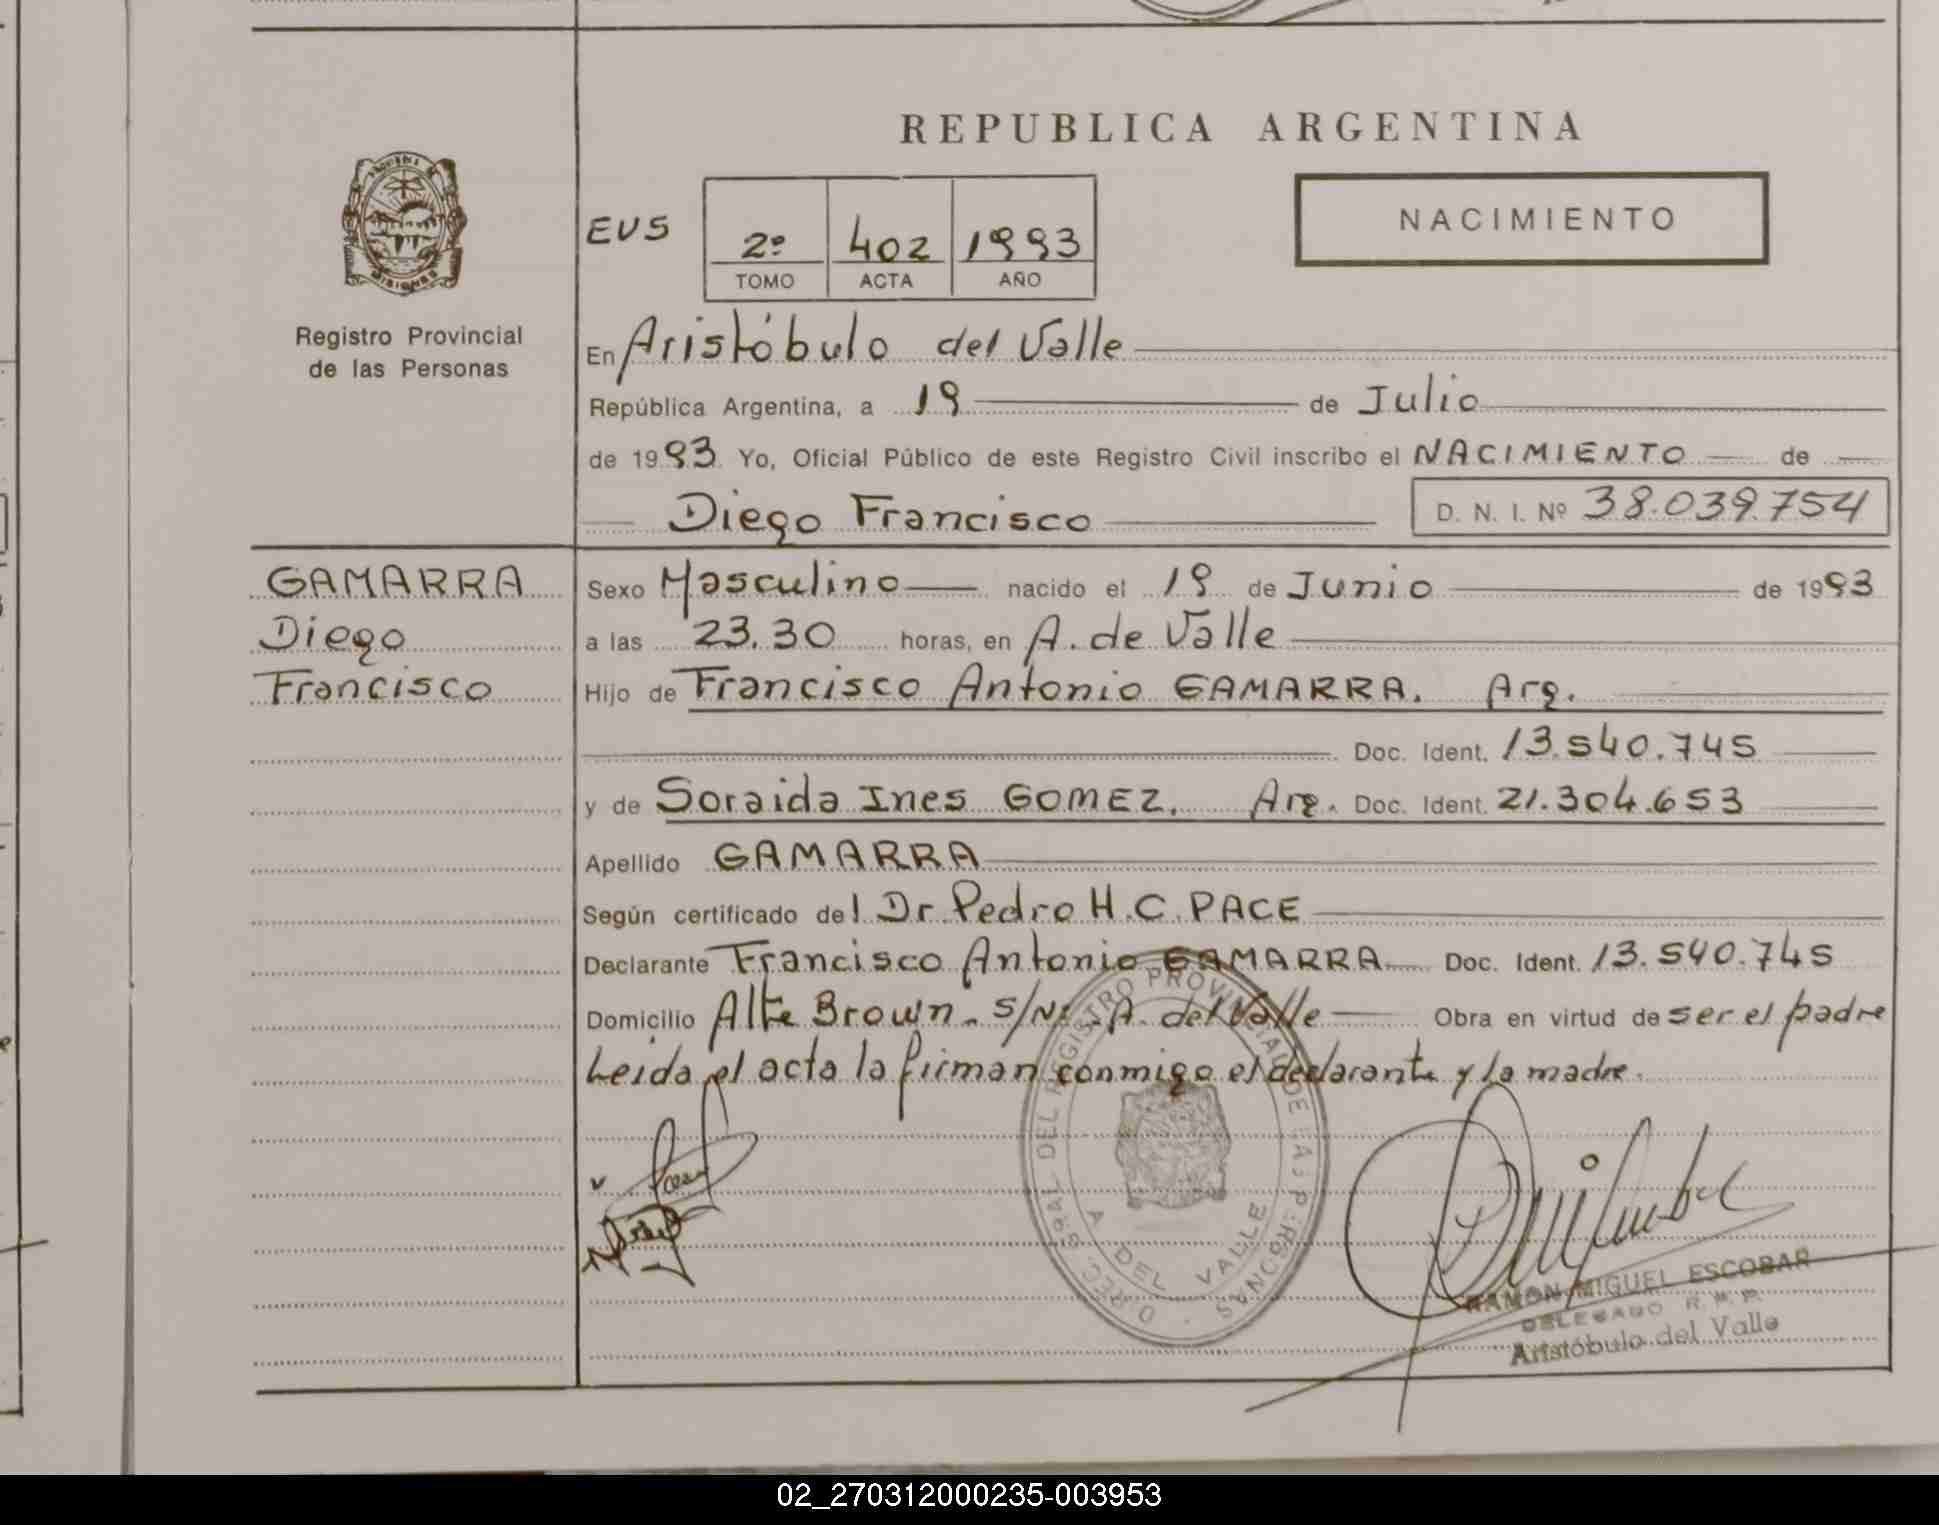 REPUBLICA ARGENTINA
NACIMIENTO
EUS
2º 402 1993
TOMO ACTA AÑO
Registro Provincial
de las Personas
En Aristóbulo del Valle
República Argentina, a 19 de Julio
de 1993 Yo, Oficial Público de este Registro Civil inscribo el NACIMIENTO de
Diego Francisco
D. N. I. Nº 38.039.754
GAMARRA
Diego
Francisco
Sexo Masculino nacido el 19 de Junio de 1993
a las 23.30 horas, en A. de Valle
Hijo de Francisco Antonio GAMARRA. Arg.
Doc. Ident. 13.540.745
y de Soraida Ines GOMEZ. Arg. Doc. Ident. 21.304.653
Apellido GAMARRA
Según certificado del Dr Pedro H.C. PACE
Declarante Francisco Antonio GAMARRA Doc. Ident. 13.540.745
Domicilio Alte Brown. S/Nº. A. del Valle Obra en virtud de ser el padre
Leida el acta la firman conmigo el declarante y la madre.
DEL REGISTRO PROVINCIAL DE LAS PERSONAS
A DEL VALLE
RAMON MIGUEL ESCOBAR
DELEGADO R. P. P.
Aristóbulo del Valle
02_270312000235-003953